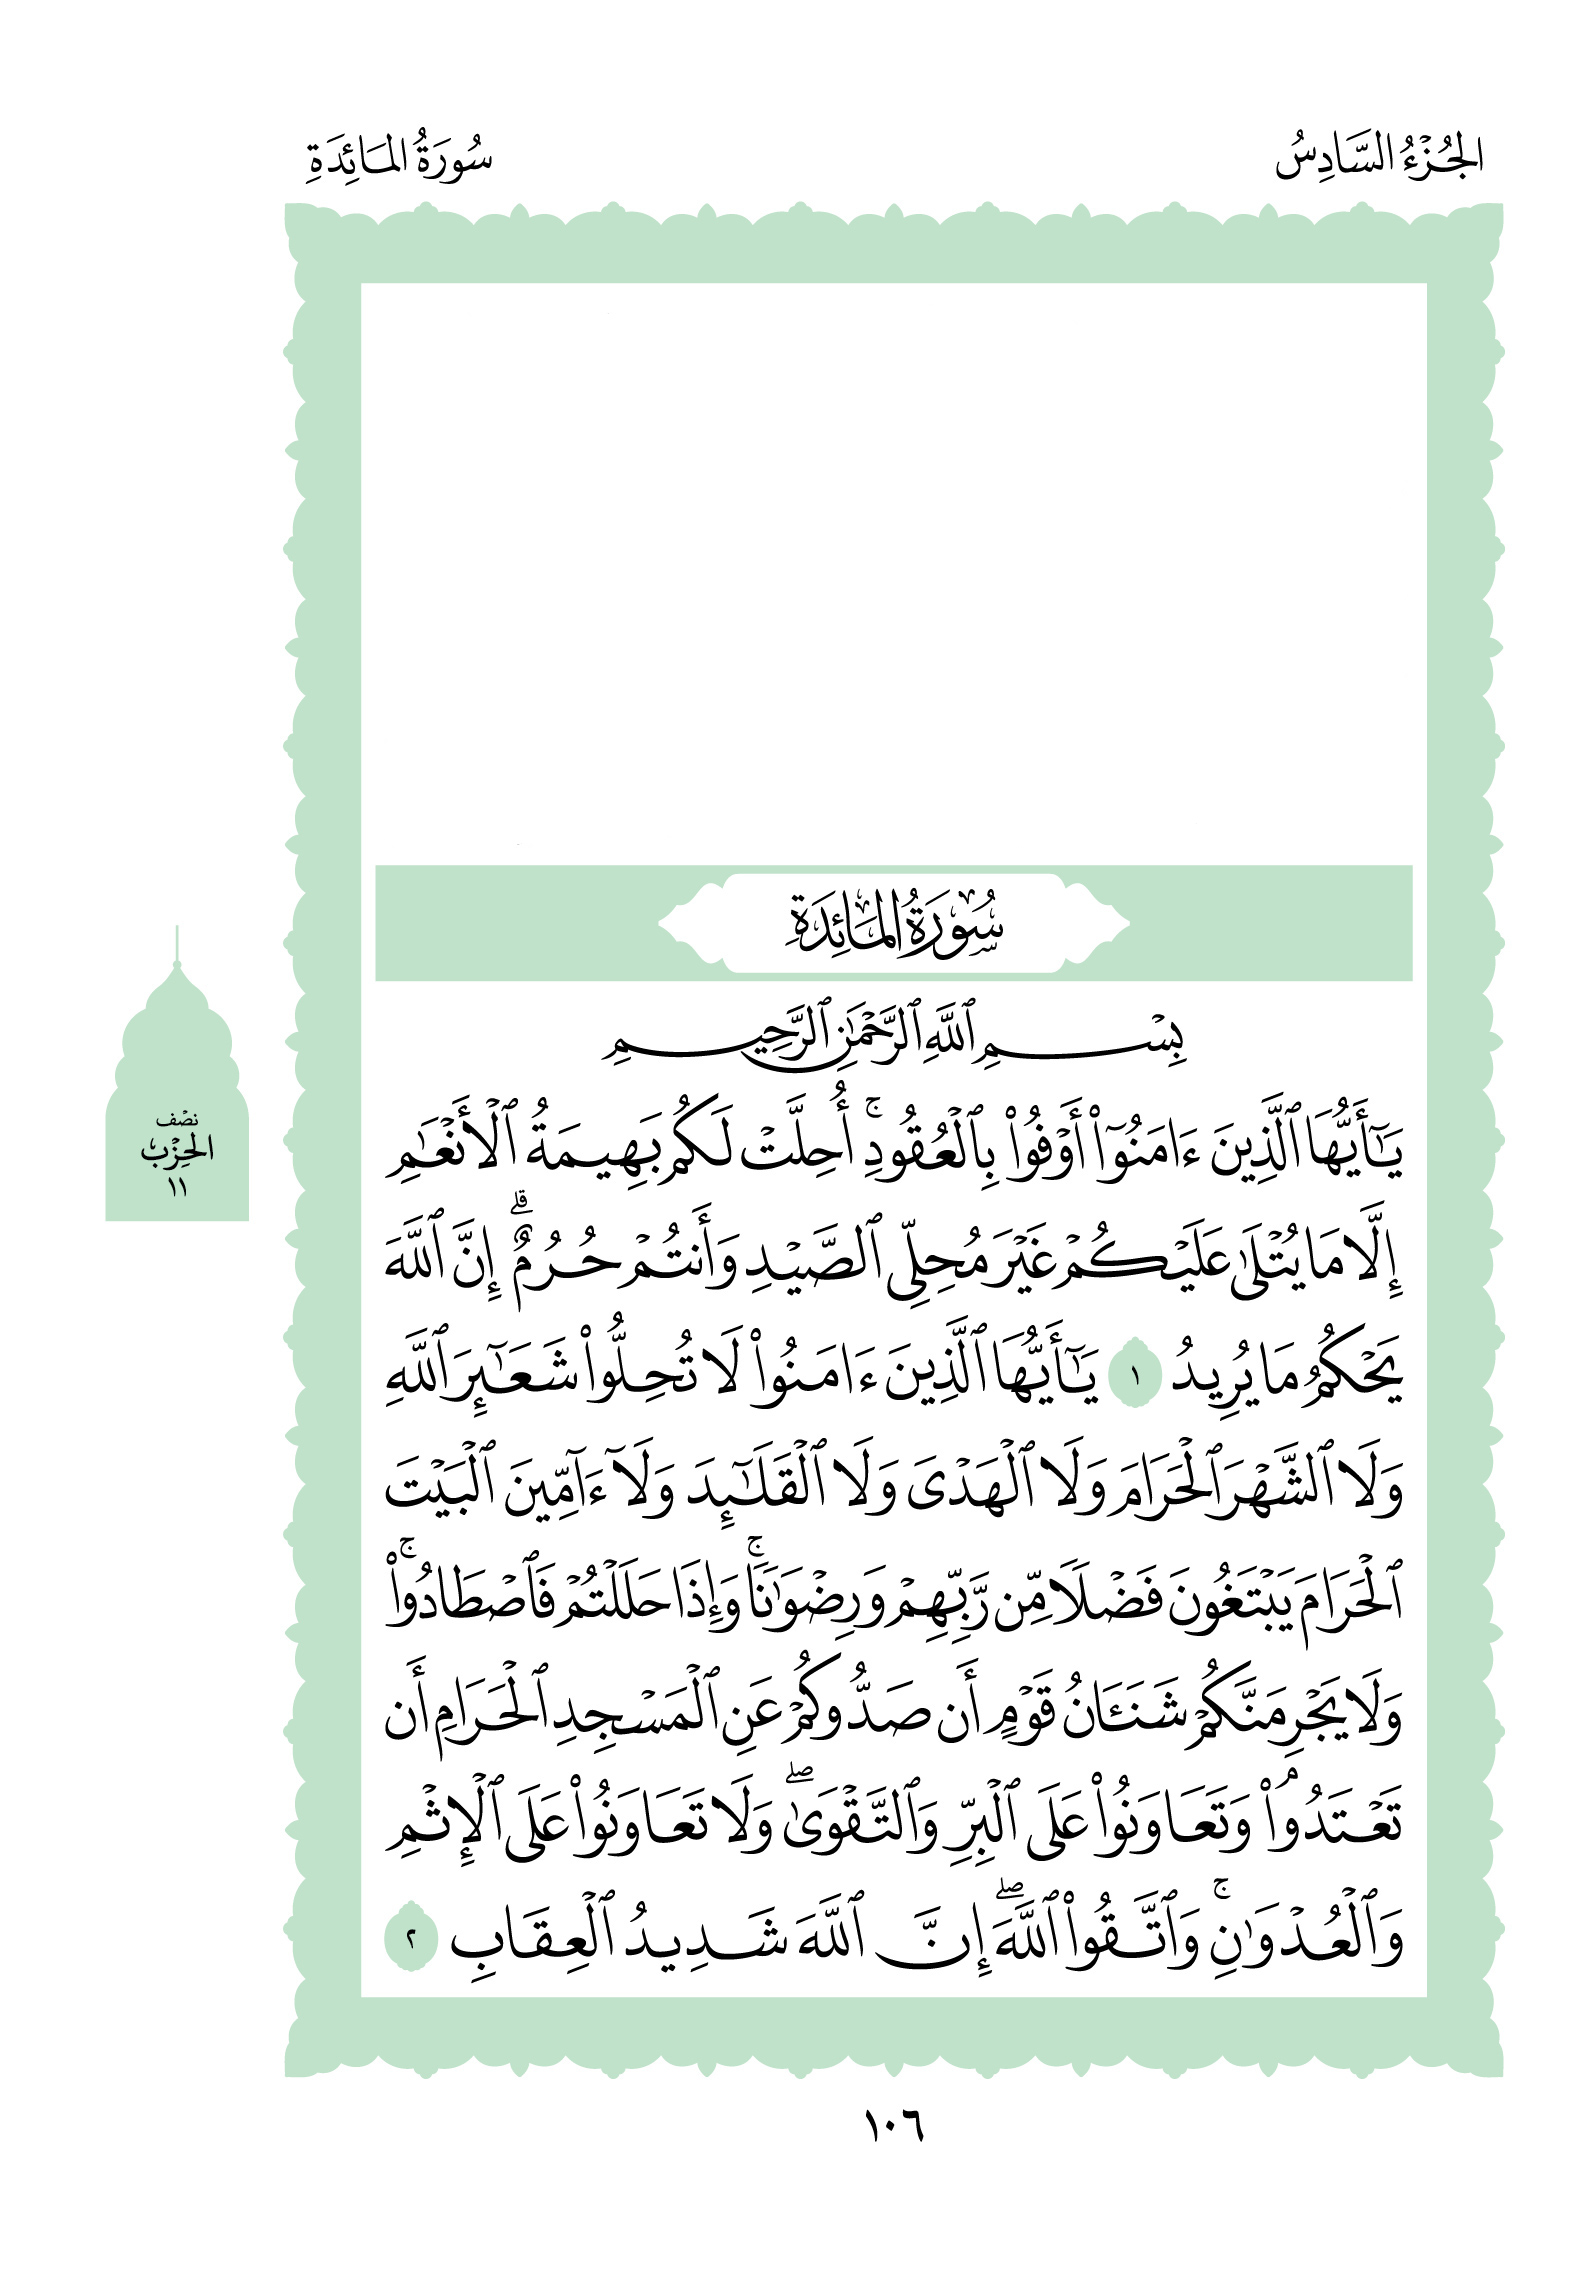 الجُزْءُ السَّادِسُ
سُورَةُ المَائِدَةِ
سُورَةُ المَائِدَةِ
بِسْمِ ٱللَّهِ ٱلرَّحْمَٰنِ ٱلرَّحِيمِ
يَٰٓأَيُّهَا ٱلَّذِينَ ءَامَنُوٓا۟ أَوْفُوا۟ بِٱلْعُقُودِ ۚ أُحِلَّتْ لَكُم بَهِيمَةُ ٱلْأَنْعَٰمِ
إِلَّا مَا يُتْلَىٰ عَلَيْكُمْ غَيْرَ مُحِلِّى ٱلصَّيْدِ وَأَنتُمْ حُرُمٌ ۗ إِنَّ ٱللَّهَ
يَحْكُمُ مَا يُرِيدُ ١ يَٰٓأَيُّهَا ٱلَّذِينَ ءَامَنُوا۟ لَا تُحِلُّوا۟ شَعَٰٓئِرَ ٱللَّهِ
وَلَا ٱلشَّهْرَ ٱلْحَرَامَ وَلَا ٱلْهَدْىَ وَلَا ٱلْقَلَٰٓئِدَ وَلَآ ءَآمِّينَ ٱلْبَيْتَ
ٱلْحَرَامَ يَبْتَغُونَ فَضْلًا مِّن رَّبِّهِمْ وَرِضْوَٰنًا ۚ وَإِذَا حَلَلْتُمْ فَٱصْطَادُوا۟ ۚ
وَلَا يَجْرِمَنَّكُمْ شَنَـَٔانُ قَوْمٍ أَن صَدُّوكُمْ عَنِ ٱلْمَسْجِدِ ٱلْحَرَامِ أَن
تَعْتَدُوا۟ ۘ وَتَعَاوَنُوا۟ عَلَى ٱلْبِرِّ وَٱلتَّقْوَىٰ ۖ وَلَا تَعَاوَنُوا۟ عَلَى ٱلْإِثْمِ
وَٱلْعُدْوَٰنِ ۚ وَٱتَّقُوا۟ ٱللَّهَ ۖ إِنَّ ٱللَّهَ شَدِيدُ ٱلْعِقَابِ ٢
نصْف
الحِزْب
١١
١٠٦